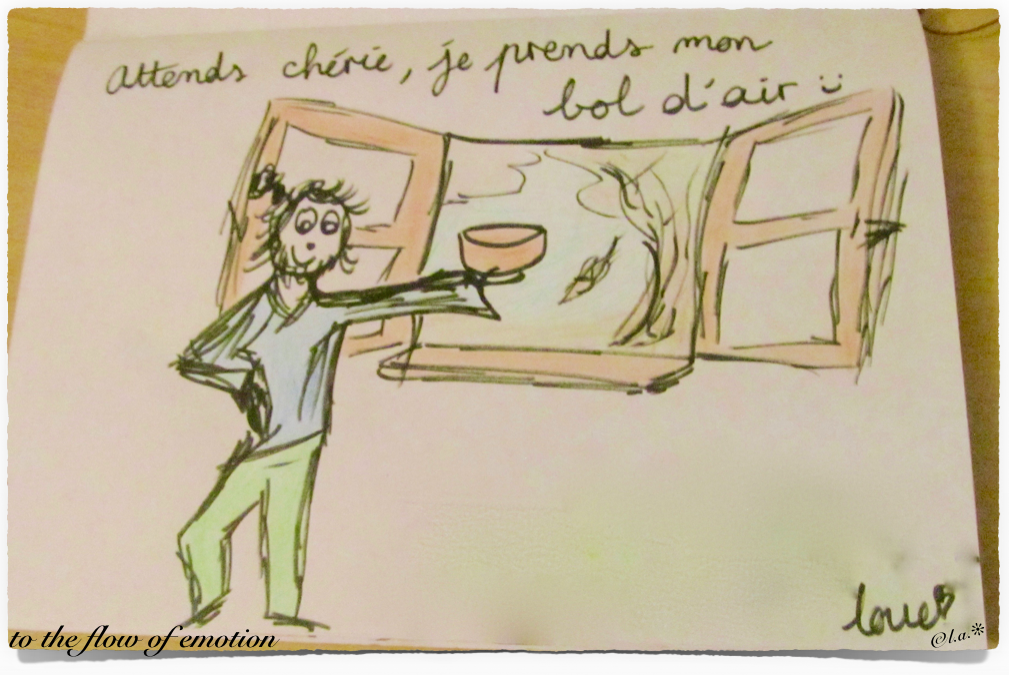 attends chérie, je prends mon
bol d'air
love
to the flow of emotion
@l.a.*